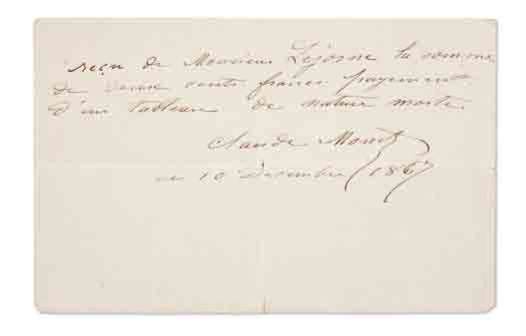 reçu de Monsieur Lejosne la somme
de deux cents francs payement
d'un tableau de nature morte
Claude Monet
ce 10 Decembre 1867